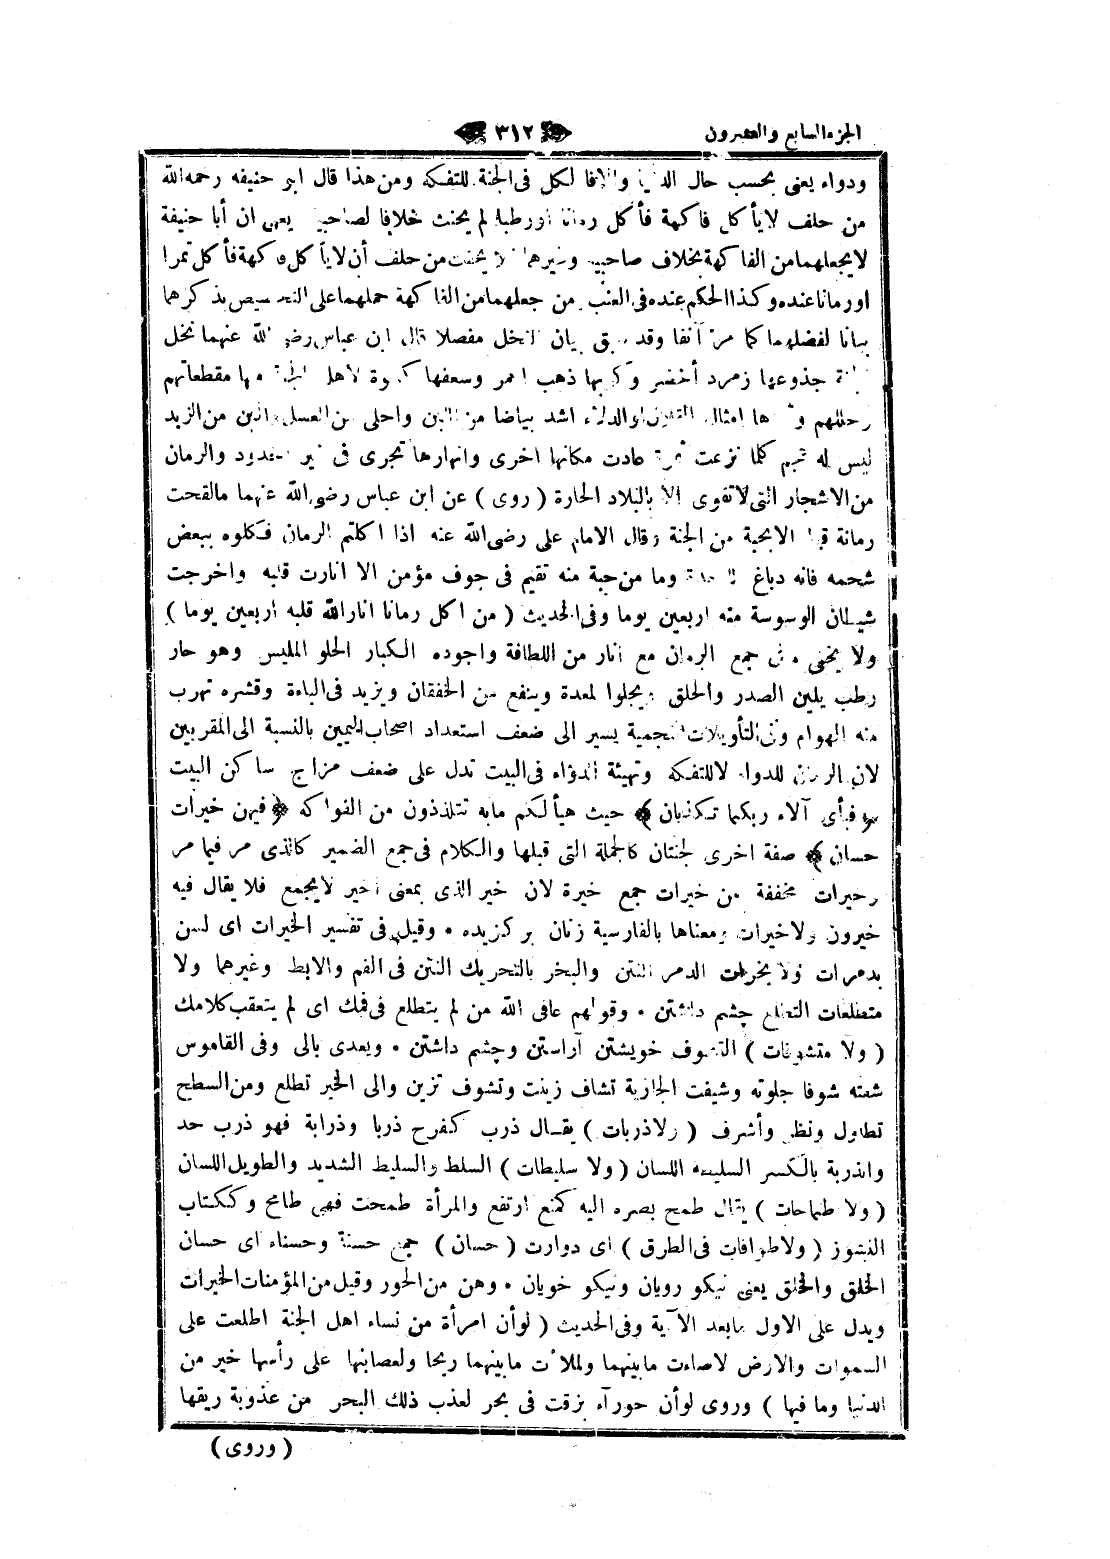 الجزء السابع والعشرون
٣١٢
ودواء يعنى بحسب حال الدنيا والا فالكل فى الجنة للتفكه ومن هذا قال ابو حنيفه رحمه الله
من حلف لا يأكل فاكهة فأكل رمانا اورطبا لم يحنث خلافا لصاحبيه يعنى ان أبا حنيفة
لا يجعلهما من الفاكهة بخلاف صاحبيه وغيرهما فلا يحنث من حلف أن لا يأكل فاكهة فأكل تمرا
اورمانا عنده وكذا الحكم عنده فى العنب من جعلهما من الفاكهة حملهما على التخصيص بذكرهما
بيانا لفضلهما كما مر آنفا وقد سبق بيان النخل مفصلا قال ابن عباس رضى الله عنهما نخل
الجنة جذوعها زمرد أخضر وكربها ذهب احمر وسعفها كسوة لاهل الجنة منها مقطعاتهم
وحللهم وثمرها امثال القلال والدلاء اشد بياضا من اللبن واحلى من العسل والين من الزبد
ليس له عجم كلما نزعت ثمرة عادت مكانها اخرى وانهارها تجرى فى غير اخدود والرمان
من الاشجار التى لا تقوى الا بالبلاد الحارة ( روى ) عن ابن عباس رضى الله عنهما مالقحت
رمانة قط الا بحبة من الجنة وقال الامام على رضى الله عنه اذا اكلتم الرمان فكلوه ببعض
شحمه فانه دباغ للمعدة وما من حبة منه تقيم فى جوف مؤمن الا انارت قلبه واخرجت
شيطان الوسوسة منه اربعين يوما وفى الحديث ( من اكل رمانا انار الله قلبه اربعين يوما )
ولا يخفى جمع الرمان مع انار من اللطافة واجوده الكبار الحلو المليس وهو حار
رطب يلين الصدر والحلق ويجلوا لمعدة وينفع من الخفقان ويزيد فى الباءة وقشره تهرب
منه الهوام وفى التأويلات النجمية يسير الى ضعف استعداد اصحاب اليمين بالنسبة الى المقربين
لان الرمان للدواء لا للتفكه وتهيئة الدواء فى البيت تدل على ضعف مزاج ساكن البيت
﴿ فبأى آلاء ربكما تكذبان ﴾ حيث هيأ لكم مابه تتلذذون من الفواكه ﴿ فيهن خيرات
حسان ﴾ صفة اخرى لجنتان كالجملة التى قبلها والكلام فى جمع الضمير كالذى مر فيما مر
وخيرات مخففة من خيرات جمع خيرة لان خير الذى بمعنى أخير لا يجمع فلا يقال فيه
خيرون ولا خيرات ومعناها بالفارسية زنان بر كزيده • وقيل فى تفسير الخيرات اى لسن
بدمرات ولا بخرات الدمر النتن والبخر بالتحريك النتن فى الفم والابط وغيرهما ولا
متطلعات التطلع چشم داشتن • وقولهم عافى الله من لم يتطلع فى فمك اى لم يتعقب كلامك
( ولا متشوفات ) التشوف خويشتن آراستن وچشم داشتن • ويعدى بالى وفى القاموس
شفته شوفا جلوته وشيفت الجارية تشاف زينت وتشوف تزين والى الخير تطلع ومن السطح
تطاول ونظر وأشرف ( ولا ذربات ) يقال ذرب كفرح ذربا وذرابة فهو ذرب حد
والذربة بالكسر السليطة اللسان ( ولا سليطات ) السلط والسليط الشديد والطويل اللسان
( ولا طماحات ) يقال طمح بصره اليه كمنع ارتفع والمرأة طمحت فهى طامح وككتاب
النشوز ( ولا طوافات فى الطرق ) اى دوارت ( حسان ) جمع حسنة وحسناء اى حسان
الخلق والخلق يعنى نيكو رويان ونيكو خويان • وهن من الحور وقيل من المؤمنات الخيرات
ويدل على الاول مابعد الآية وفى الحديث ( لوأن امرأة من نساء اهل الجنة اطلعت على
السموات والارض لاضاءت مابينهما ولملأت مابينهما ريحا ولعصابتها على رأسها خير من
الدنيا وما فيها ) وروى لوأن حورآء بزقت فى بحر لعذب ذلك البحر من عذوبة ريقها
( وروى )